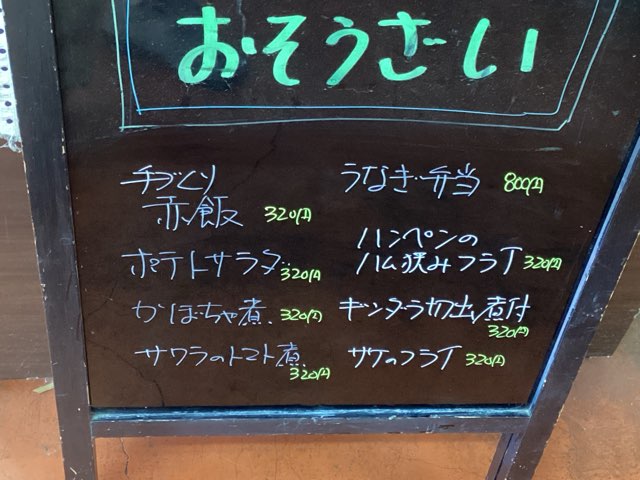 おそうざい
手づくり
赤飯 320円
ポテトサラダ 320円
かぼちゃ煮 320円
サワラのトマト煮 320円
うなぎ弁当 800円
ハンペンの
ハム挟みフライ 320円
ギンダラ切出煮付 320円
サケのフライ 320円